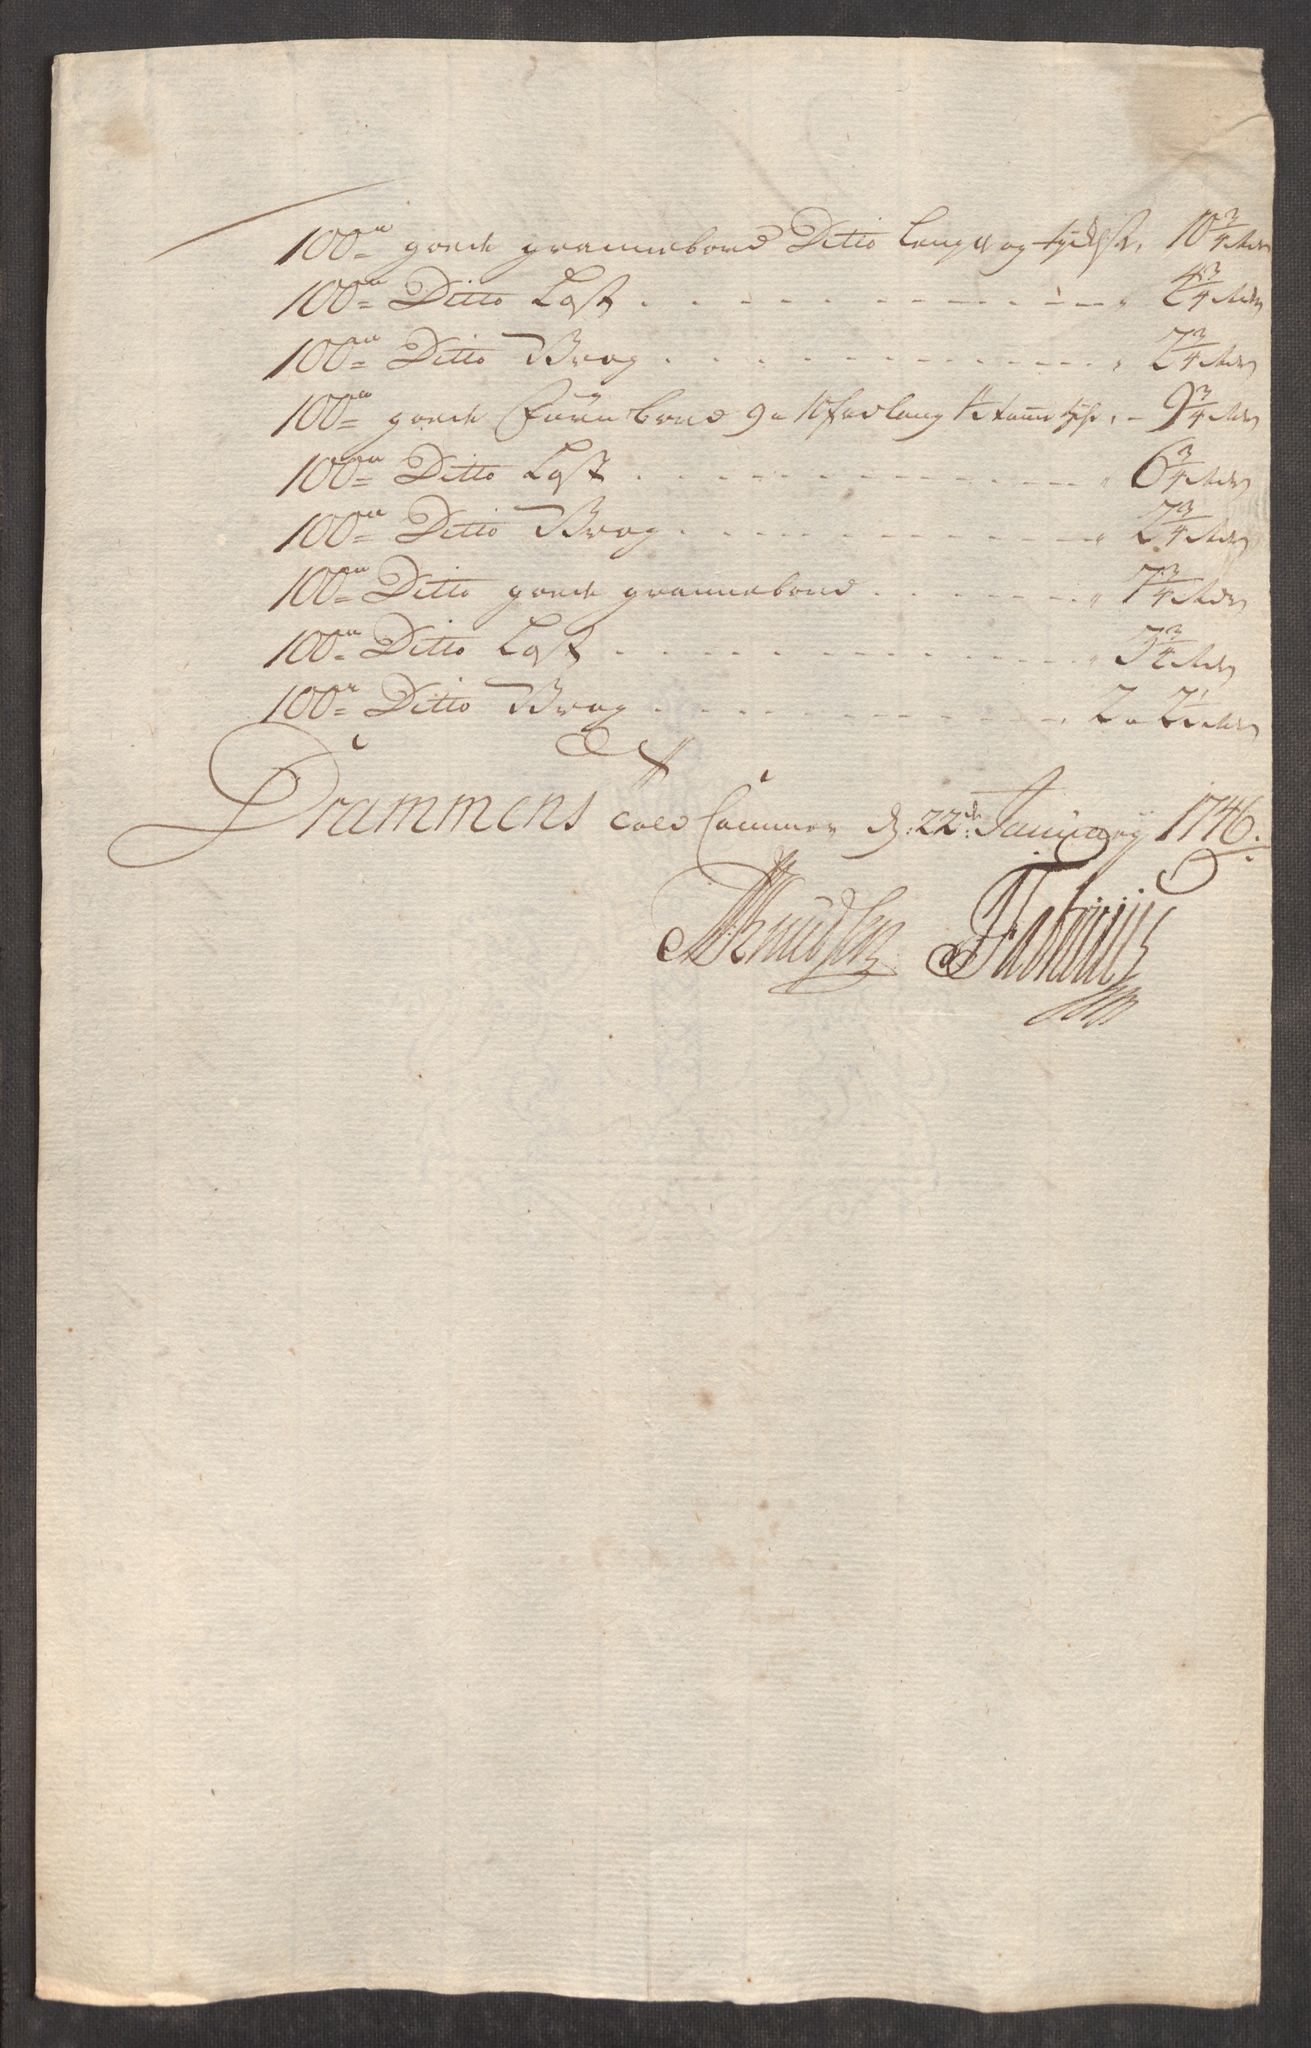 100de goede grannebord Ditto længde og tychelse, 10 3/4 Rdr
100de Ditto Last . . . . . . . . 4 3/4 Rdr
100de Ditto Vrag . . . . . . . . 2 3/4 Rdr
100de goede Furubord 9 a 10 fod lang 1 1/2 tomme tyk . - 9 3/4 Rdr
100de Ditto Last . . . . . . . . 6 3/4 Rdr
100de Ditto Vrag . . . . . . . . 2 3/4 Rdr
100de Ditto goede grannebord . . . . . . 7 3/4 Rdr
100de Ditto Last . . . . . . . . 3 3/4 Rdr
100de Ditto Vrag . . . . . . . . 2 a 2 1/2 Rdr
Drammens Told Cammer d: 22de January 1746.
Knudsen Fabritius